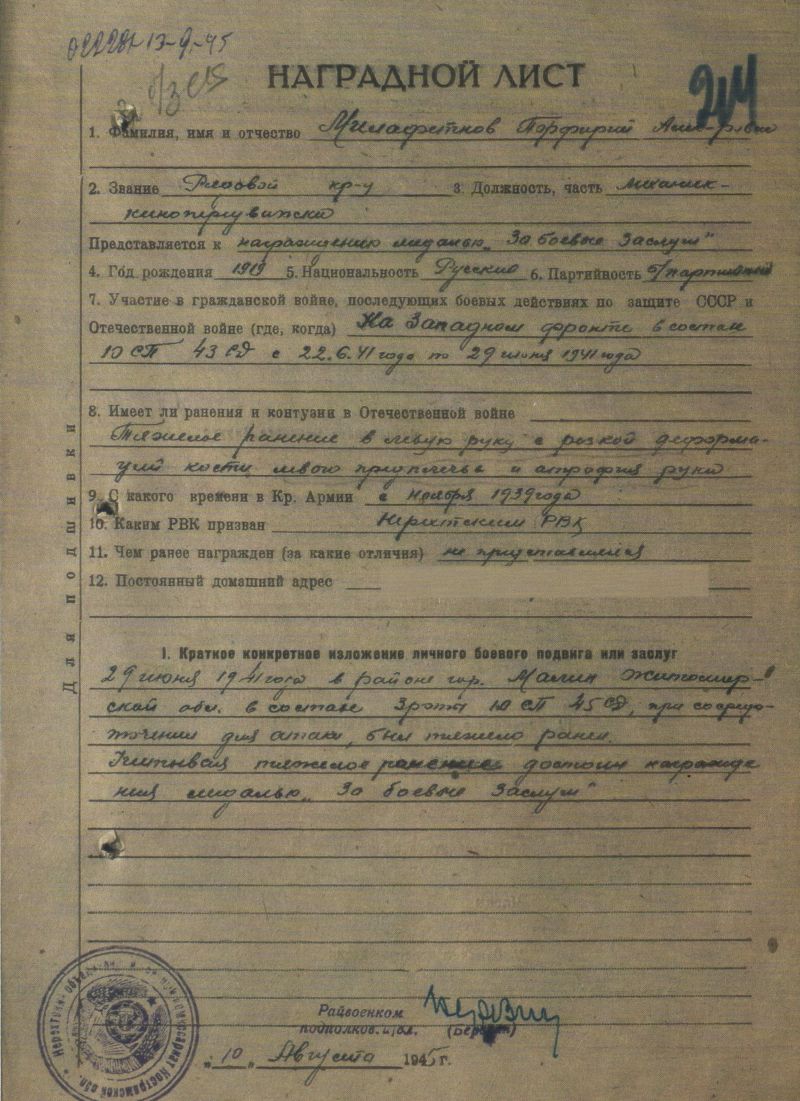 13-9-45
НАГРАДНОЙ ЛИСТ
1. Фамилия, имя и отчество Порфирий
2. Звание Рядовой кр-ц 3. Должность, часть механик-
Представляется к награждению медалью „За боевые заслуги"
4. Год рождения 1919 5. Национальность Русский 6. Партийность б/партийный
7. Участие в гражданской войне, последующих боевых действиях по защите СССР и
Отечественной войне (где, когда) На Западном фронте в составе
10 СП 43 СД с 22.6.41 года по 29 июня 1941 года
8. Имеет ли ранения и контузии в Отечественной войне
Тяжелое ранение в левую руку с резкой деформа-
цией кости левого предплечья и атрофия руки
9. С какого времени в Кр. Армии с ноября 1939 года
10. Каким РВК призван Нерехтским РВК
11. Чем ранее награжден (за какие отличия) не представлялся
12. Постоянный домашний адрес
Для подшивки
I. Краткое конкретное изложение личного боевого подвига или заслуг
29 июня 1941 года в районе гор. Малин Житомир-
ской обл. в составе 10 СП 45 СД, при сосредо-
точении для атаки, был тяжело ранен.
Учитывая тяжелое ранение достоин награжде
ния медалью „За боевые заслуги"
Райвоенком
подполков.
„10" Августа 1945 г.